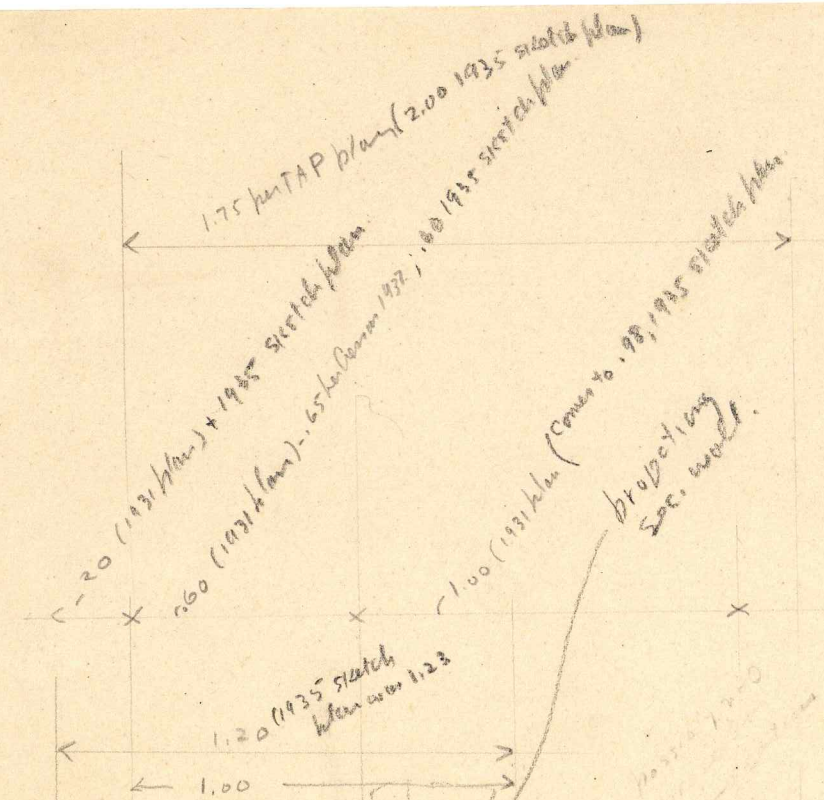 1.75 per TAP plan (2.00 1935 sketch plan)
.20 (1931 plan) + 1935 sketch plan
.60 (1931 plan) - .65 per 1932; .60 1935 sketch plan
1.00 (1931 plan (comes to .98, 1935 sketch plan
projecting
sec. wall.
1.20 (1935 sketch
plan was 1.23
1.00